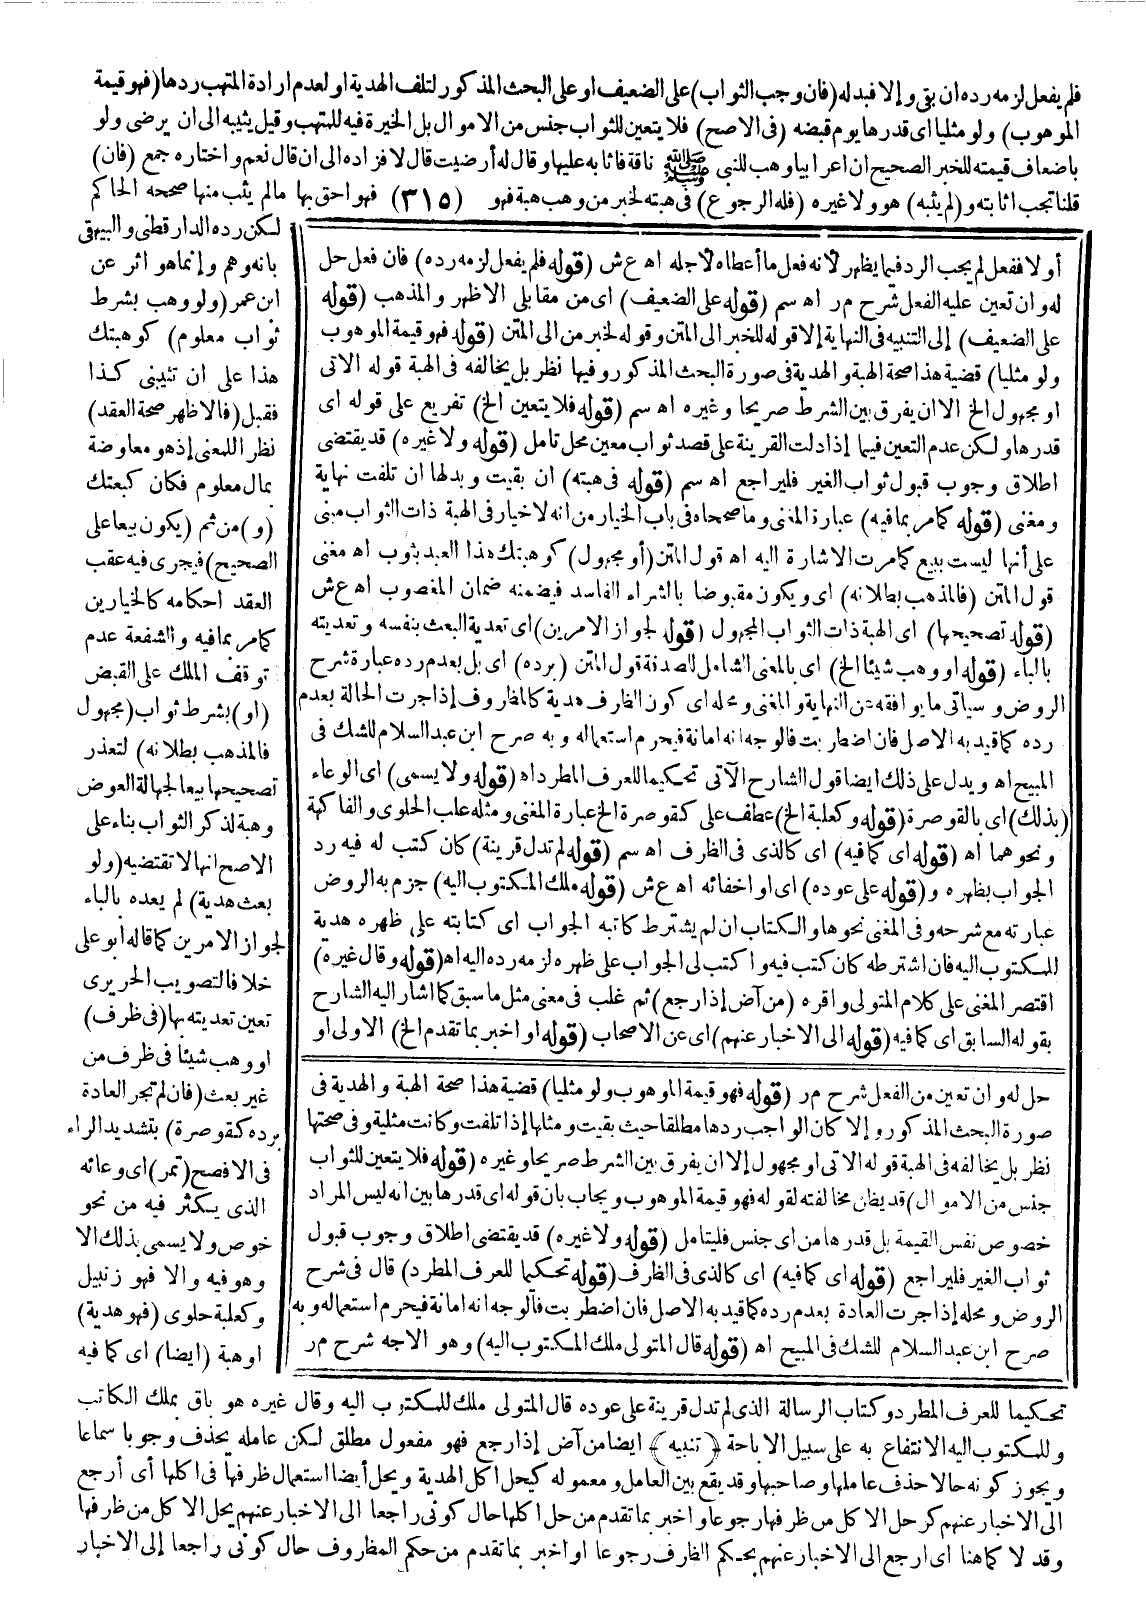 فلم يفعل لزمه رده ان بقى والا فبدله (فان وجب الثواب) على الضعيف او على البحث المذكور لتلف الهدية او لعدم ارادة المتهب ردها (فهو قيمة
الموهوب) ولو مثليا اى قدرها يوم قبضه (فى الاصح) فلا يتعين للثواب جنس من الاموال بل الخيرة فيه للمتهب وقيل يثيبه الى ان يرضى ولو
باضعاف قيمته للخبر الصحيح ان اعرابيا وهب للنبى ﷺ ناقة فاثابه عليها وقال له أرضيت قال لا فزاده الى ان قال نعم واختاره جمع (فان)
قلنا تجب اثابته و (لم يثبه) هو ولا غيره (فله الرجوع) فى هبته لخبر من وهب هبة فهو (٣١٥) فهو احق بها مالم يثب منها صححه الحاكم
لكن رده الدار قطنى والبيهقى
بانه وهم وإنما هو اثر عن
ابن عمر (ولو وهب بشرط
ثواب معلوم) كوهبتك
هذا على ان تثيبنى كذا
فقبل (فالاظهر صحة العقد)
نظرا للمعنى إذ هو معاوضة
بمال معلوم فكان كبعتك
(و) من ثم (يكون بيعا على
الصحيح) فيجرى فيه عقب
العقد احكامه كالخيارين
كما مر بما فيه والشفعة عدم
توقف الملك على القبض
(او) بشرط ثواب (مجهول
فالمذهب بطلانه) لتعذر
تصحيحها بيعا لجهالة العوض
وهبة لذكر الثواب بناء على
الاصح انها لا تقتضيه (ولو
بعث هدية) لم يعده بالباء
لجواز الامرين كما قاله أبو على
خلافا لتصويب الحريرى
تعين تعديته بها (فى ظرف)
او وهب شيئا فى ظرف من
غير بعث (فان لم تجر العادة
برده كقوصرة) بتشديد الراء
فى الافصح (تمر) اى وعائه
الذى يكثر فيه من نحو
خوص ولا يسمى بذلك الا
وهو فيه والا فهو زنبيل
وكعلبة حلوى (فهو هدية)
او هبة (ايضا) اى كما فيه
أولا ففعل لم يجب الرد فيما يظهر لانه فعل ما أعطاه لاجله اه ع ش (قوله فلم يفعل لزمه رده) فان فعل حل
له وان تعين عليه الفعل شرح م ر اه سم (قوله على الضعيف) اى من مقابلى الاظهر والمذهب (قوله
على الضعيف) إلى التنبيه فى النهاية إلا قوله للخبر الى المتن وقوله لخبر من الى المتن (قوله فهو قيمة الموهوب
ولو مثليا) قضية هذا صحة الهبة والهدية فى صورة البحث المذكور وفيها نظر بل يخالفه فى الهبة قوله الاتى
او مجهول الخ الا ان يفرق بين الشرط صريحا وغيره اه سم (قوله فلا يتعين الخ) تفريع على قوله اى
قدرها ولكن عدم التعين فيما إذا دلت القرينة على قصد ثواب معين محل تامل (قوله ولا غيره) قد يقتضى
اطلاق وجوب قبول ثواب الغير فليراجع اه سم (قوله فى هبته) ان بقيت وبدلها ان تلفت نهاية
ومغنى (قوله كما مر بما فيه) عبارة المغنى وما صححاه فى باب الخيار من انه لا خيار فى الهبة ذات الثواب مبنى
على أنها ليست بيع كما مرت الاشارة اليه اه قول المتن (أو مجهول) كوهبتك هذا العبد بثوب اه مغنى
قول المتن (فالمذهب بطلانه) اى ويكون مقبوضا بالشراء الفاسد فيضمنه ضمان المغصوب اه ع ش
(قوله تصحيحها) اى الهبة ذات الثواب المجهول (قوله لجواز الامرين) اى تعدية البعث بنفسه وتعديته
بالباء (قوله او وهب شيئا الخ) اى بالمعنى الشامل للصدقة قول المتن (برده) اى بل بعدم رده عبارة شرح
الروض وسياتى ما يوافقه عن النهاية والمغنى ومحله اى كون الظرف هدية كالمظروف إذا جرت الحالة بعدم
رده كما قيد به الاصل فان اضطربت فالوجه انه امانة فيحرم استعماله وبه صرح ابن عبد السلام للشك فى
المبيح اه ويدل على ذلك ايضا قول الشارح الآتى تحكيما للعرف المطرد اه (قوله ولا يسمى) اى الوعاء
(بذلك) اى بالقوصرة (قوله وكعلبة الخ) عطف على كقوصرة الخ عبارة المغنى ومثله علب الحلوى والفاكهة
ونحوهما اه (قوله اى كما فيه) اى كالذى فى الظرف اه سم (قوله لم تدل قرينة) كان كتب له فيه رد
الجواب بظهره و (قوله على عوده) اى او اخفائه اه ع ش (قوله ملك المكتوب اليه) جزم به الروض
عبارته مع شرحه وفى المغنى نحوها والكتاب ان لم يشترط كاتبه الجواب اى كتابته على ظهره هدية
للمكتوب اليه فان اشترطه كان كتب فيه واكتب لى الجواب على ظهره لزمه رده اليه اه (قوله وقال غيره)
اقتصر المغنى على كلام المتولى واقره (من آض إذا رجع) ثم غلب فى معنى مثل ما سبق كما اشار اليه الشارح
بقوله السابق اى كما فيه (قوله الى الاخبار عنهم) اى عن الاصحاب (قوله او اخبر بما تقدم الخ) الاولى او
حل له وان تعين من الفعل شرح م ر (قوله فهو قيمة الموهوب ولو مثليا) قضية هذا صحة الهبة والهدية فى
صورة البحث المذكور وإلا كان الواجب ردها مطلقا حيث بقيت ومثلها إذا تلفت وكانت مثلية وفى صحتها
نظر بل يخالفه فى الهبة قوله الاتى او مجهول إلا ان يفرق بين الشرط صريحا وغيره (قوله فلا يتعين للثواب
جنس من الاموال) قد يظن مخالفته لقوله فهو قيمة الموهوب ويجاب بان قوله اى قدرها بين انه ليس المراد
خصوص نفس القيمة بل قدرها من اى جنس فليتامل (قوله ولا غيره) قد يقتضى اطلاق وجوب قبول
ثواب الغير فليراجع (قوله اى كما فيه) اى كالذى فى الظرف (قوله تحكيما للعرف المطرد) قال فى شرح
الروض ومحله إذا جرت العادة بعدم رده كما قيد به الاصل فان اضطربت فالوجه انه امانة فيحرم استعماله وبه
صرح ابن عبد السلام للشك فى المبيح اه (قوله قال المتولى ملك المكتوب اليه) وهو الاجه شرح م ر
تحكيما للعرف المطرد وكتاب الرسالة الذى لم تدل قرينة على عوده قال المتولى ملك للمكتوب اليه وقال غيره هو باق بملك الكاتب
وللمكتوب اليه الانتفاع به على سبيل الاباحة (تنبيه) ايضا من آض إذا رجع فهو مفعول مطلق لكن عامله يحذف وجوبا سماعا
ويجوز كونه حالا حذف عاملها وصاحبها وقد يقع بين العامل ومعموله كيحل اكل الهدية ويحل أيضا استعمال ظرفها فى اكلها أى أرجع
الى الاخبار عنهم كر حل الاكل من ظرفها رجوعا او اخبر بما تقدم من حل اكلها حال كونى راجعا الى الاخبار عنهم بحل الاكل من ظرفها
وقد لا كما هنا اى ارجع الى الاخبار عنهم بحكم الظرف رجوعا او اخبر بما تقدم من حكم المظروف حال كونى راجعا إلى الاخبار